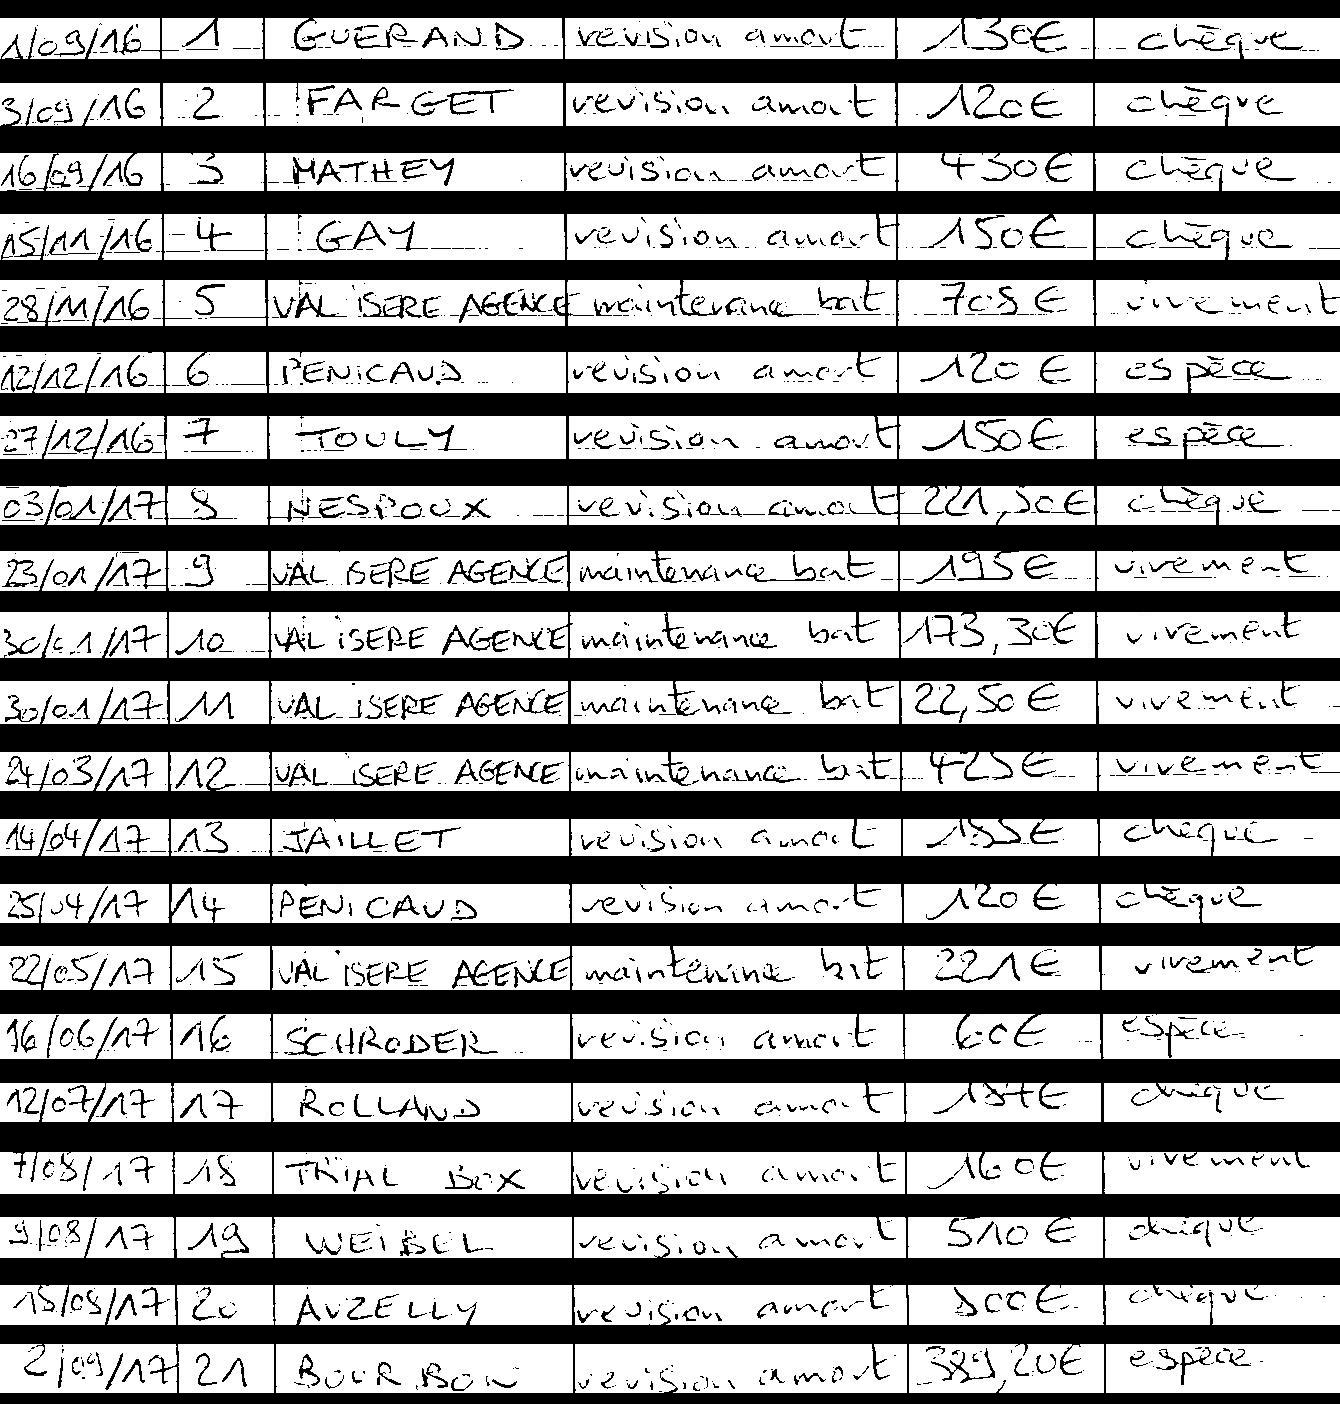 1/09/16 1 GUERAND revision amort 130€ chèque
3/09/16 2 FARGET revision amort 120€ chèque
16/09/16 3 MATHEY revision amort 430€ chèque
15/11/16 4 GAY revision amort 150€ chèque
28/11/16 5 VAL ISERE AGENCE maintenance bat 705€ virement
12/12/16 6 PENICAUD revision amort 120€ espèce
27/12/16 7 TOULY revision amort 150€ espèce
03/01/17 8 NESPOUX revision amort 221,50€ chèque
23/01/17 9 VAL ISERE AGENCE maintenance bat 195€ virement
30/01/17 10 VAL ISERE AGENCE maintenance bat 173,30€ virement
30/01/17 11 VAL ISERE AGENCE maintenance bat 22,50€ virement
24/03/17 12 VAL ISERE AGENCE maintenance bat 425€ virement
14/04/17 13 JAILLET revision amort chèque
25/04/17 14 PENICAUD revision amort 120€ chèque
22/05/17 15 VAL ISERE AGENCE maintenance bat 221€ virement
16/06/17 16 SCHRODER revision amort 60€ espèce
12/07/17 17 ROLLAND revision amort 187€ chèque
7/08/17 18 TRIAL BOX revision amort 160€ virement
9/08/17 19 WEIBEL revision amort 510€ chèque
20 AUZELLY revision amort chèque
2/09/17 21 BOURBON revision amort 389,20€ espèce